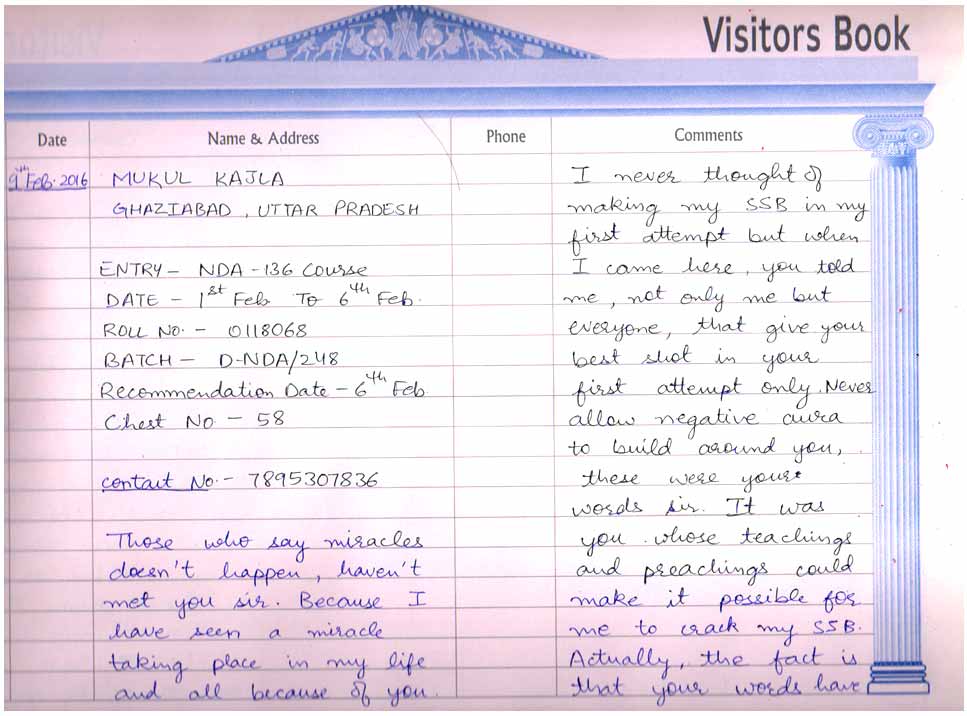 Visitors Book
Date
Name & Address
Phone
Comments
9th Feb. 2016
MUKUL KAJLA
GHAZIABAD, UTTAR PRADESH
ENTRY - NDA - 136 Course
DATE - 1st Feb To 6th Feb.
ROLL NO. - 0118068
BATCH - D-NDA/248
Recommendation Date - 6th Feb
Chest No - 58
contact No. - 7895307836
Those who say miracles
doesn't happen, haven't
met you sir. Because I
have seen a miracle
taking place in my life
and all because of you.
I never thought of
making my SSB in my
first attempt but when
I came here, you told
me, not only me but
everyone, that give your
best shot in your
first attempt only. Never
allow negative aura
to build around you,
these were your
words sir. It was
you whose teachings
and preachings could
make it possible for
me to crack my SSB.
Actually, the fact is
that your words have